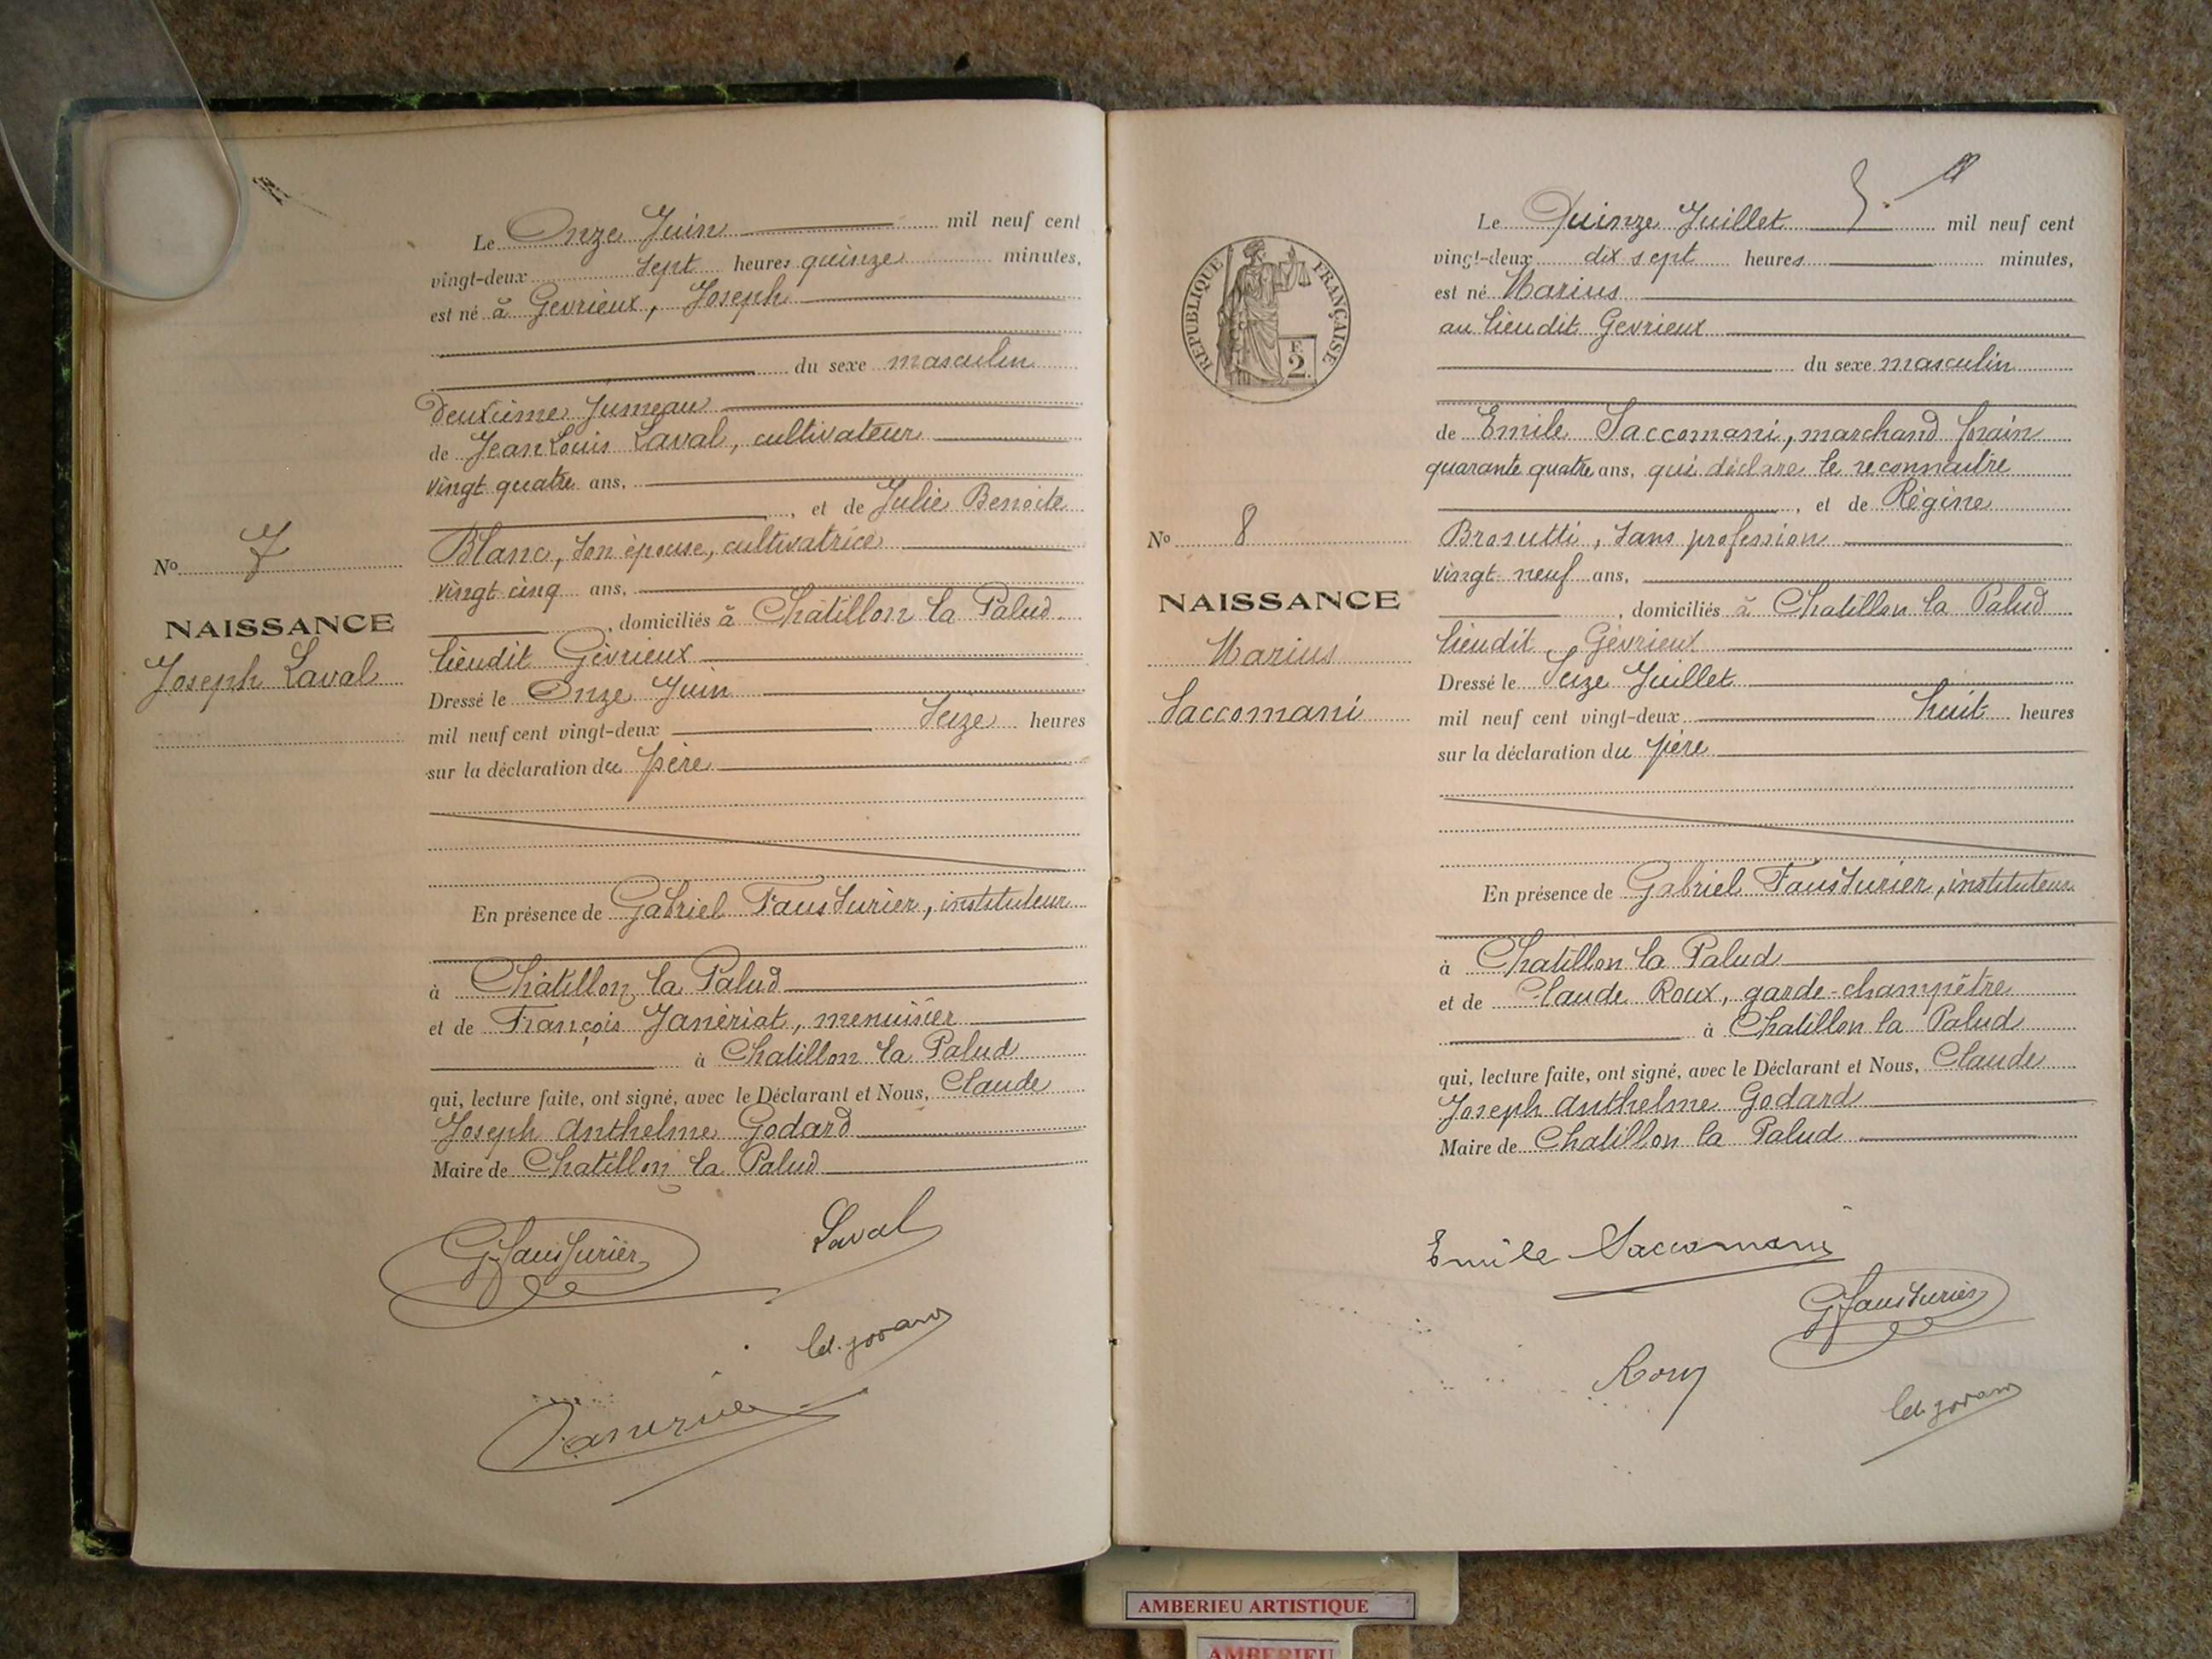 Le Onze Juin mil neuf cent
vingt-deux sept heures quinze minutes,
est né à Gevrieux, Joseph
du sexe masculin
Deuxième Jumeau
de Jean Louis Laval, cultivateur
vingt quatre ans,
, et de Julie Benoite
Blanc, son épouse, cultivatrice
vingt cinq ans,
, domiciliés à Châtillon la Palud
lieudit Gévrieux
Dressé le Onze Juin
mil neuf cent vingt-deux Seize heures
sur la déclaration du père
En présence de Gabriel Fausturier, instituteur
à Châtillon la Palud
et de François Janériat, menuisier
à Chatillon la Palud
qui, lecture faite, ont signé, avec le Déclarant et Nous, Claude
Joseph Anthelme Godard
Maire de Chatillon la Palud
No 7
NAISSANCE
Joseph Laval
G Fausturier
Laval
Le Quinze Juillet mil neuf cent
vingt-deux dix sept heures minutes,
est né Marius
au lieudit Gevrieux
du sexe masculin
de Emile Saccomani, marchand forain
quarante quatre ans, qui déclare le reconnaitre
, et de Régine
Brosutti, sans profession
vingt neuf ans,
, domiciliés à Chatillon la Palud
lieudit Gévrieux
Dressé le Seize Juillet
mil neuf cent vingt-deux huit heures
sur la déclaration du père
En présence de Gabriel Fausturier, instituteur
à Chatillon la Palud
et de Claude Roux, garde-champêtre
à Chatillon la Palud
qui, lecture faite, ont signé, avec le Déclarant et Nous, Claude
Joseph Anthelme Godard
Maire de Chatillon la Palud
RÉPUBLIQUE FRANÇAISE
F.
2.
No 8
NAISSANCE
Marius
Saccomani
Emile Saccomani
G Fausturier
Roux
AMBERIEU ARTISTIQUE
AMBERIEU